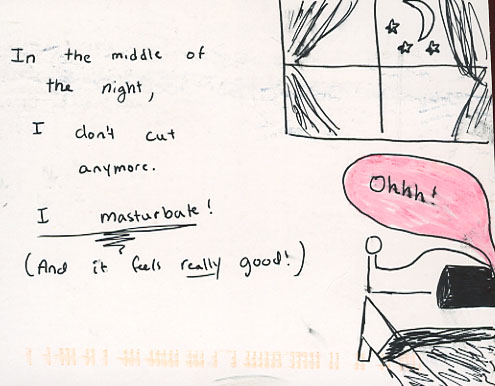 In the middle of
the night,
I don't cut
anymore.
I masturbate!
(And it feels really good!)
Ohhh!